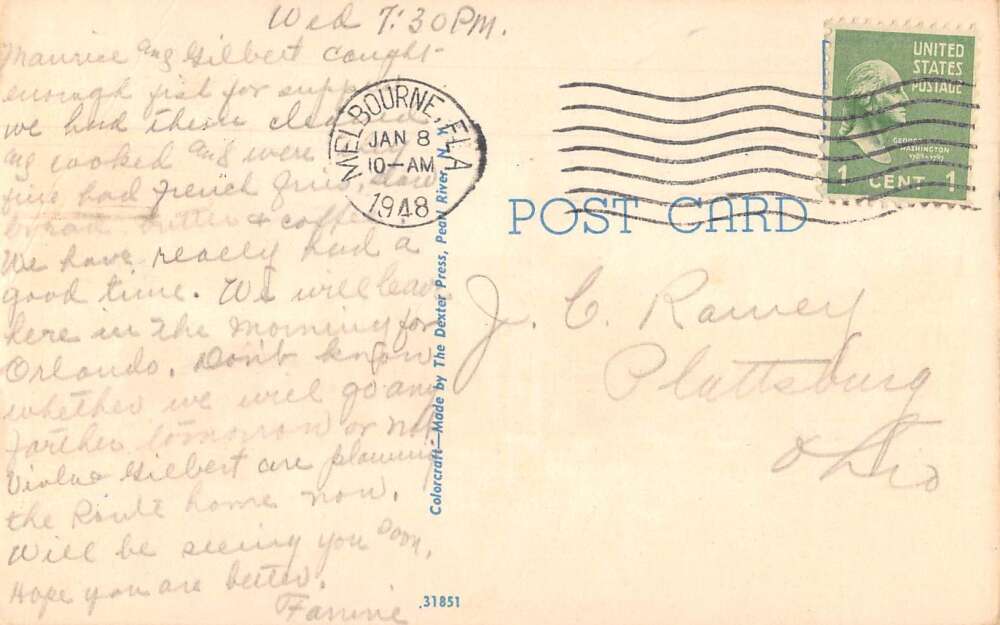 Wed 7:30 PM.
Maurice and Gilbert caught
enough fish for supp
we had them cleaned
and cooked and were
fine had French fries, slaw
bread butter & coffee
We have really had a
good time. We will leave
here in the morning for
Orlando. Don't know
whether we will go any
farther tomorrow or not
Viola & Gilbert are planning
the Route home now.
Will be seeing you soon,
Hope you are better.
Fannie
MELBOURNE, FLA
JAN 8
10-AM
1948
UNITED
STATES
POSTAGE
GEORGE
WASHINGTON
1789-1797
1 CENT 1
POST CARD
J. C. Ramey
Plattsburg
Ohio
Colorcraft—Made by The Dexter Press, Pearl River, N.Y.
31851